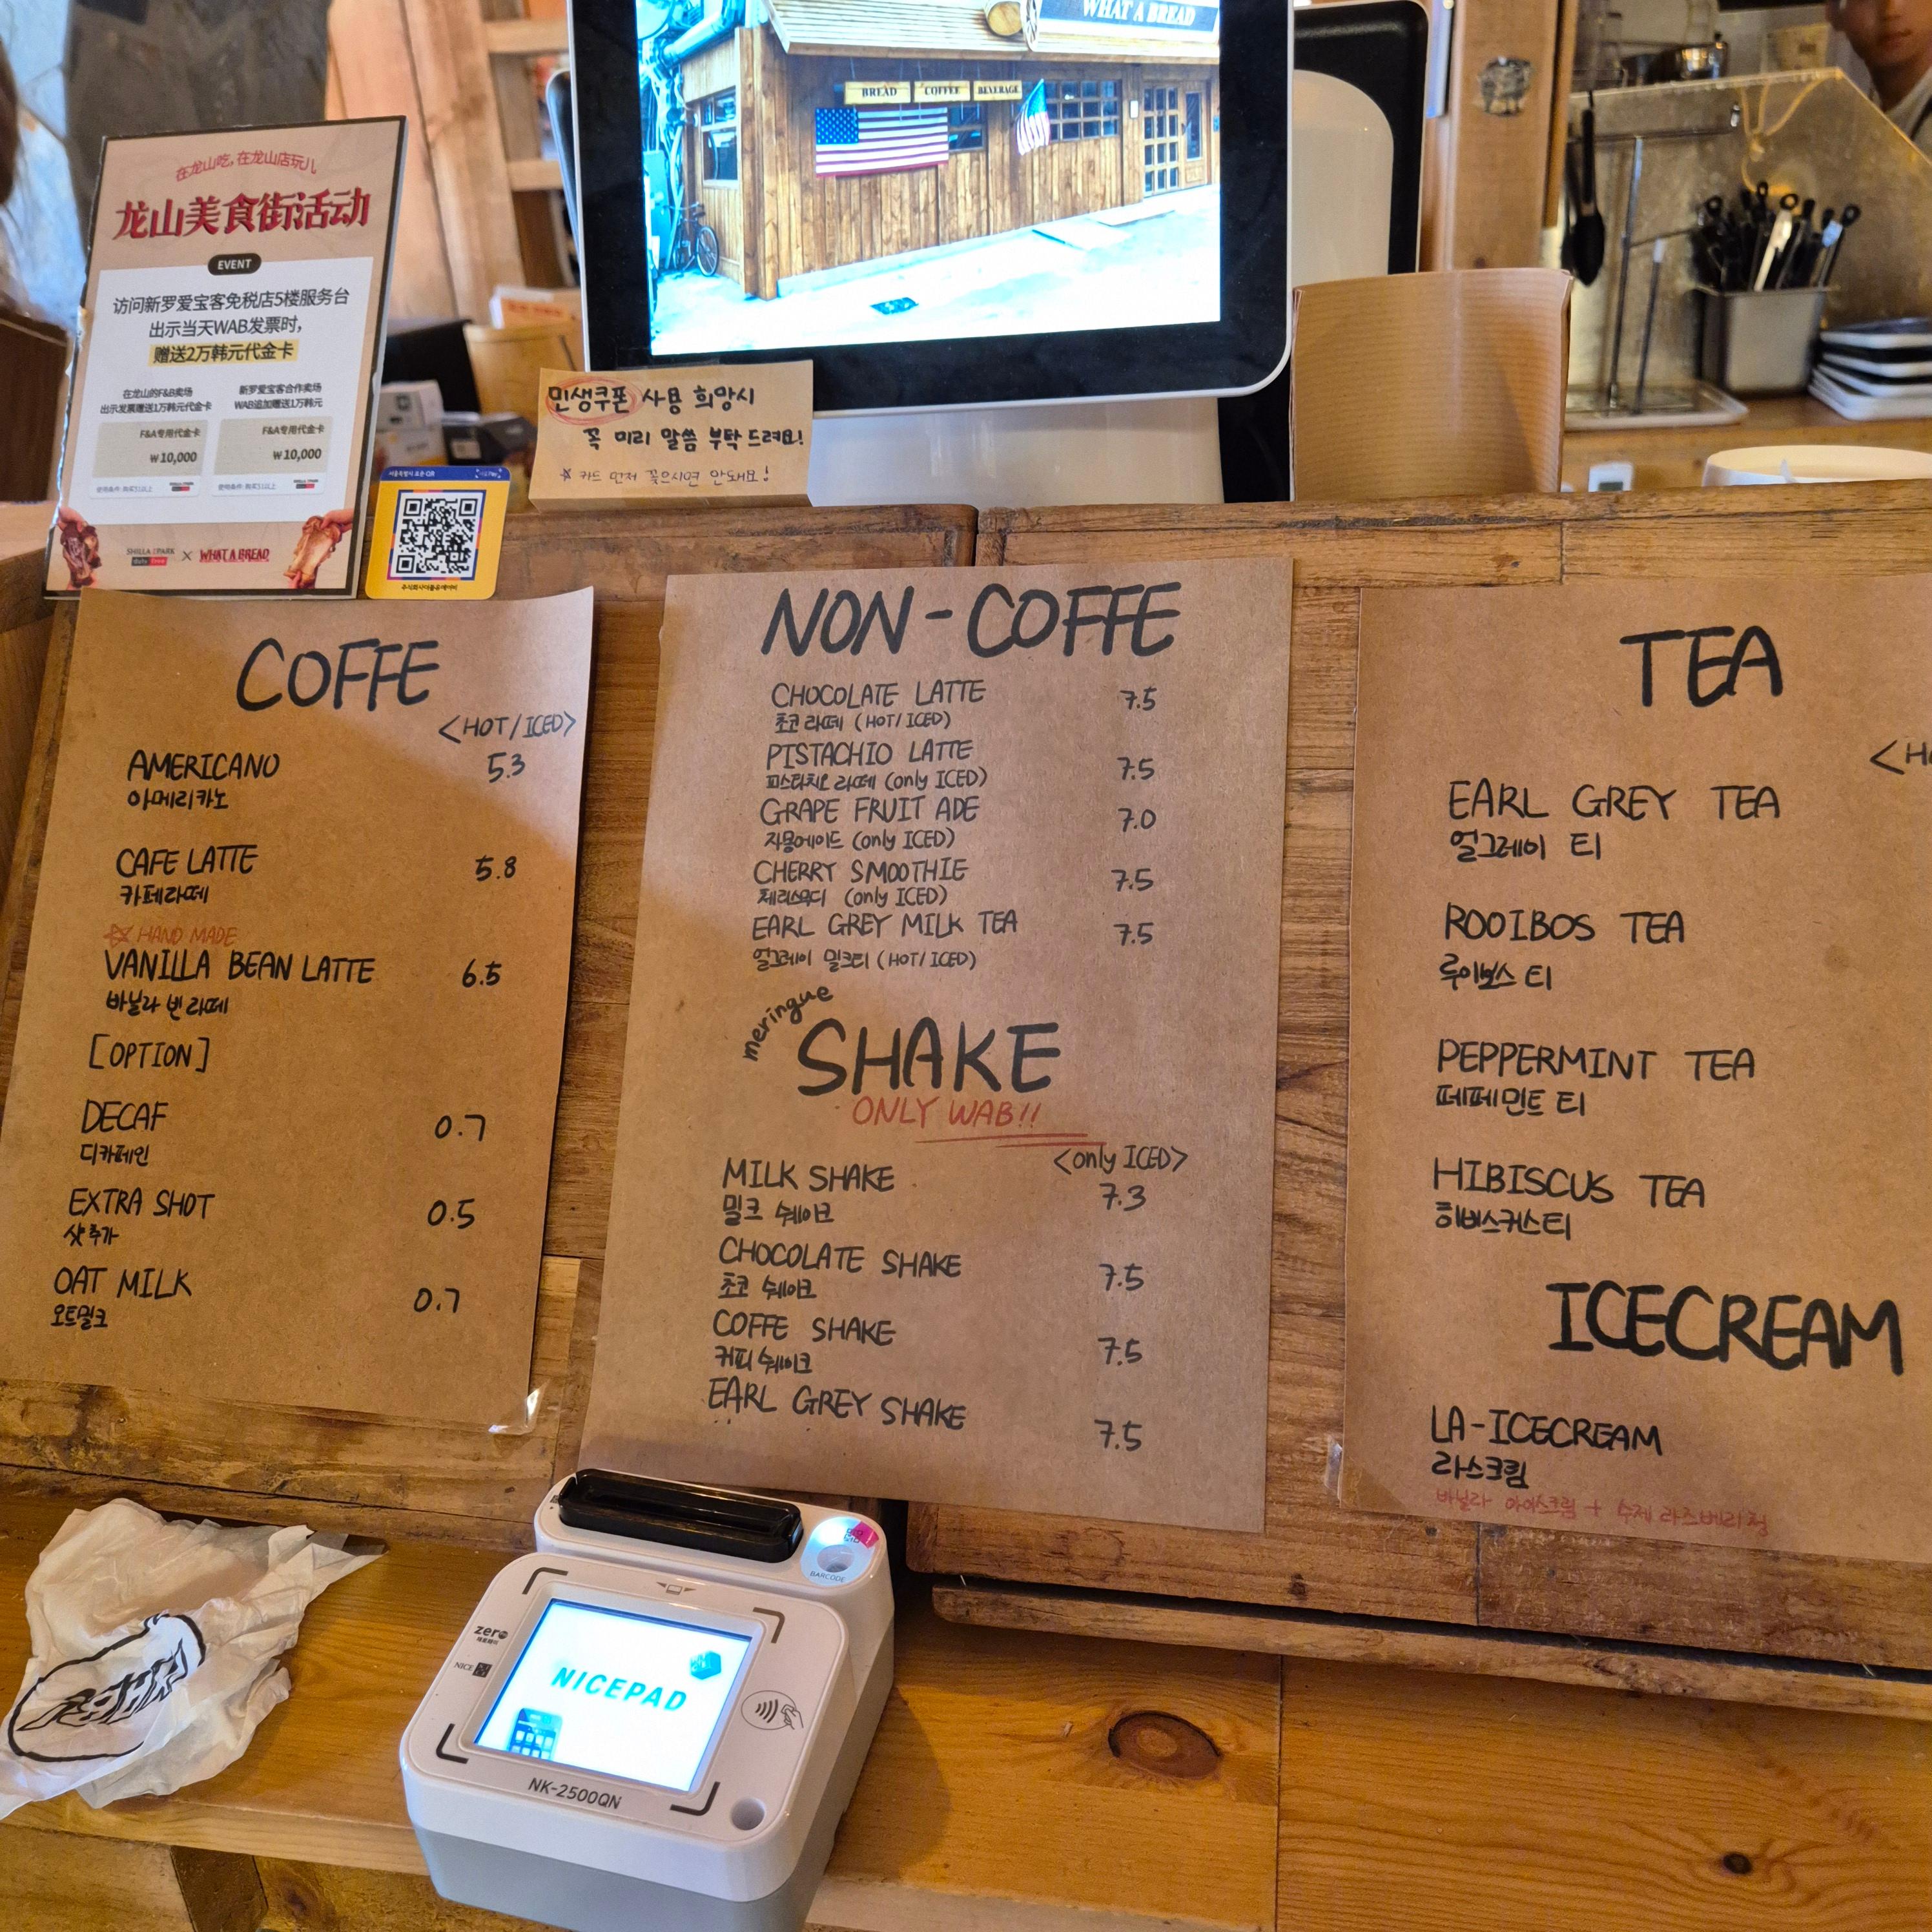 WHAT A BREAD
BREAD
COFFEE
BEVERAGE
在龙山吃, 在龙山店玩儿
龙山美食街活动
EVENT
访问新罗爱宝客免税店5楼服务台
出示当天WAB发票时,
赠送2万韩元代金卡
在龙山的F&B卖场
出示发票赠送1万韩元代金卡
F&A专用代金卡
₩10,000
新罗爱宝客合作卖场
WAB追加赠送1万韩元
F&A专用代金卡
₩10,000
SHILLA IPARK
Duty Free
X WHAT A BREAD
민생쿠폰 사용 희망시
꼭 미리 말씀 부탁 드려요!
☆ 카드 먼저 꽂으시면 안돼요!
COFFE
<HOT/ICED>
AMERICANO 5.3
아메리카노
CAFE LATTE 5.8
카페라떼
☆ HAND MADE
VANILLA BEAN LATTE 6.5
바닐라 빈 라떼
[OPTION]
DECAF 0.7
디카페인
EXTRA SHOT 0.5
샷 추가
OAT MILK 0.7
오트밀크
NON-COFFE
CHOCOLATE LATTE 7.5
초코 라떼 (HOT/ICED)
PISTACHIO LATTE 7.5
피스타치오 라떼 (only ICED)
GRAPE FRUIT ADE 7.0
자몽에이드 (only ICED)
CHERRY SMOOTHIE 7.5
체리스무디 (only ICED)
EARL GREY MILK TEA 7.5
얼그레이 밀크티 (HOT/ICED)
meringue
SHAKE
ONLY WAB!!
<only ICED>
MILK SHAKE 7.3
밀크 쉐이크
CHOCOLATE SHAKE 7.5
초코 쉐이크
COFFE SHAKE 7.5
커피 쉐이크
EARL GREY SHAKE 7.5
TEA
<H
EARL GREY TEA
얼그레이 티
ROOIBOS TEA
루이보스 티
PEPPERMINT TEA
페페민트 티
HIBISCUS TEA
히비스커스티
ICECREAM
LA-ICECREAM
라스크림
바닐라 아이스크림 + 수제 라즈베리잼
BARCODE
zero
NICE
NICEPAD
NK-2500QN